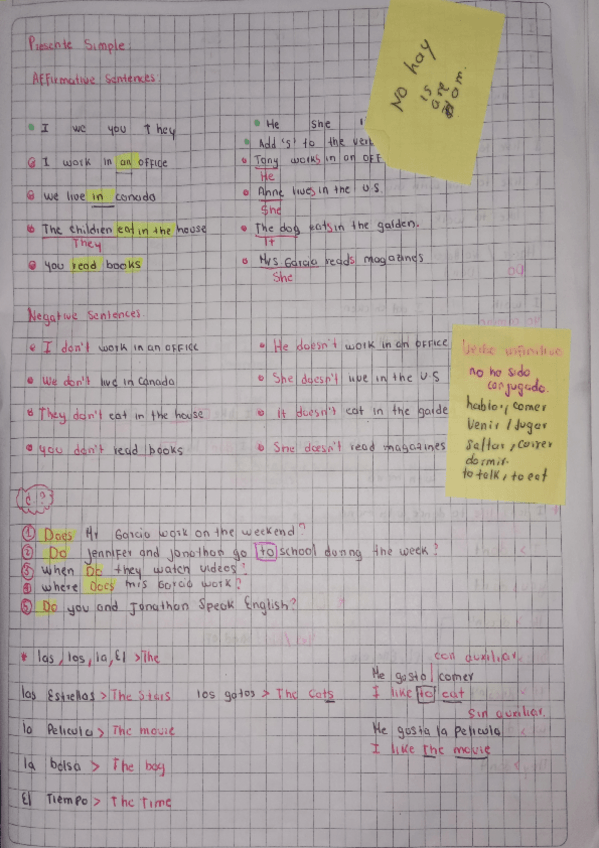 Presente Simple
Affirmative Sentences
I we you They
I work in an office
we live in canada
The children eat in the house
They
you read books
He She
Add 's' to the verb
Tony works in an OFF
He
Anne lives in the U.S.
She
The dog eats in the garden.
It
Mrs Garcia reads magazines
She
No hay
is
are
am.
Negative Sentences
I don't work in an office
We don't live in Canada
They don't eat in the house
you don't read books
He doesn't work in an office
She doesn't live in the U S
It doesn't eat in the garde
She doesn't read magazines
Verbo infinitivo
no ha sido
conjugado.
hablar, comer
Venir / Jugar
Saltar, correr
dormir.
to talk, to eat
¿?
① Does Mr Garcia work on the weekend?
② Do Jennifer and Jonathan go to school during the week?
③ when Do they watch videos?
④ where Does mrs Garcia work?
⑤ Do you and Jonathan Speak English?
* las, los, la, El > The
las Estrellas > The Stars los gatos > The cats
la Pelicula > The movie
la bolsa > The bag
El Tiempo > The Time
con auxiliar
Me gusta comer
I like to eat
Sin auxiliar.
Me gusta la Pelicula
I like the movie